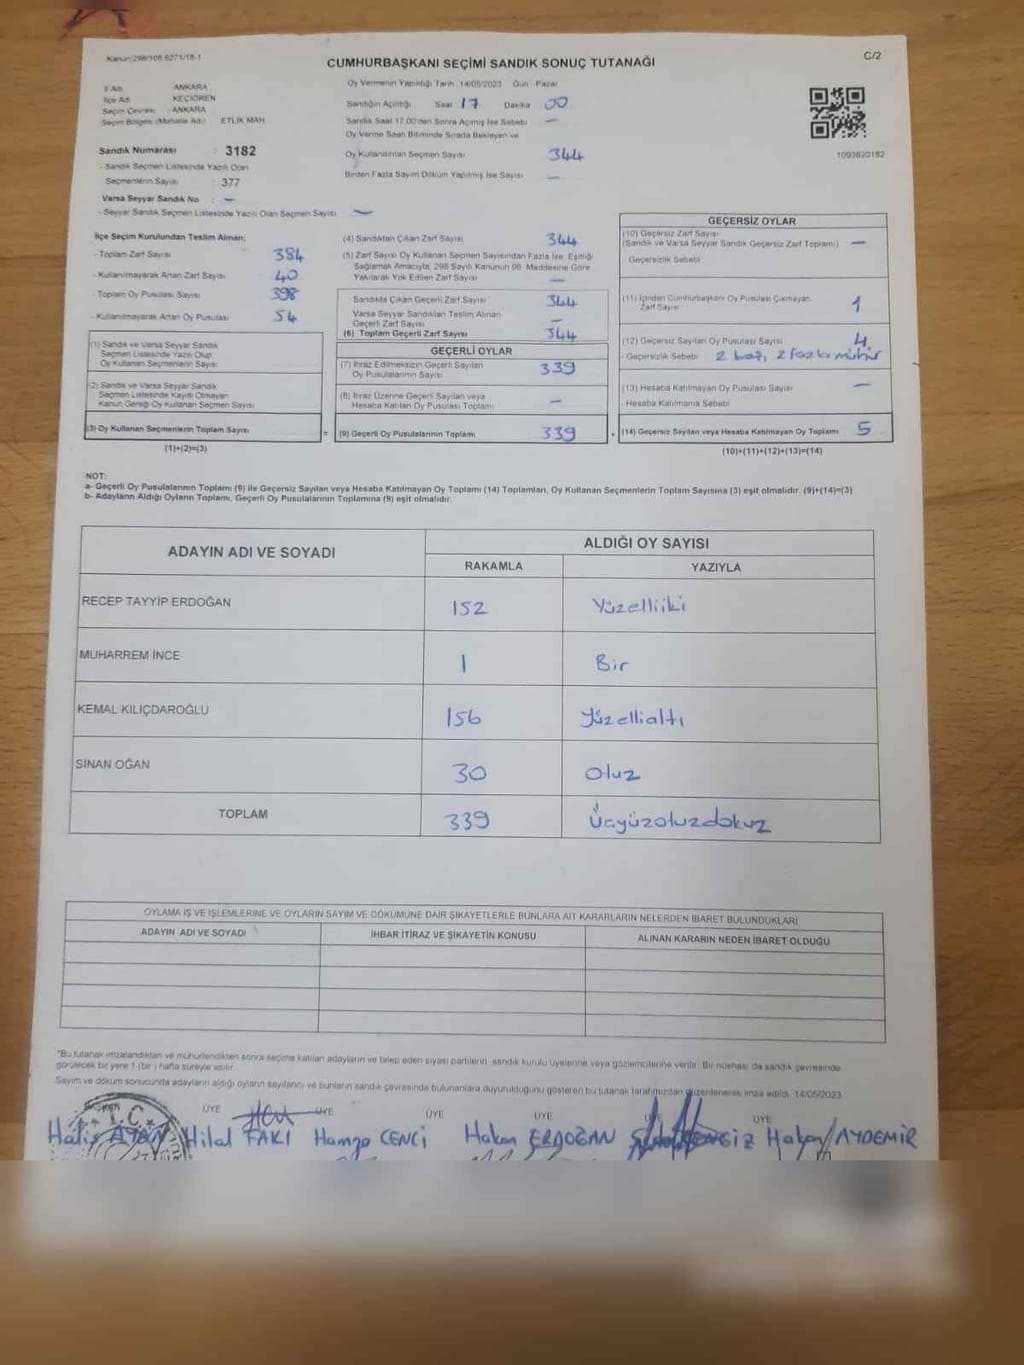 Kanun:298/106,6271/18-1
C/2
CUMHURBAŞKANI SEÇİMİ SANDIK SONUÇ TUTANAĞI
İl Adı : ANKARA
İlçe Adı : KEÇİÖREN
Seçim Çevresi : ANKARA
Seçim Bölgesi (Mahalle Adı) : ETLİK MAH
Sandık Numarası : 3182
- Sandık Seçmen Listesinde Yazılı Olan
Seçmenlerin Sayısı : 377
Varsa Seyyar Sandık No : -
- Seyyar Sandık Seçmen Listesinde Yazılı Olan Seçmen Sayısı -
Oy Vermenin Yapıldığı Tarih 14/05/2023 Gün : Pazar
Sandığın Açıldığı Saat 17 Dakika 00
Sandık Saat 17:00'den Sonra Açılmış İse Sebebi -
Oy Verme Saati Bitiminde Sırada Bekleyen ve
Oy Kullandırılan Seçmen Sayısı 344
Birden Fazla Sayım Döküm Yapılmış İse Sayısı -
1093820182
İlçe Seçim Kurulundan Teslim Alınan;
- Toplam Zarf Sayısı 384
- Kullanılmayarak Artan Zarf Sayısı 40
- Toplam Oy Pusulası Sayısı 398
- Kullanılmayarak Artan Oy Pusulası 54
(1) Sandık ve Varsa Seyyar Sandık
Seçmen Listesinde Yazılı Olup
Oy Kullanan Seçmenlerin Sayısı
(2) Sandık ve Varsa Seyyar Sandık
Seçmen Listesinde Kaydı Olmayan
Kanun Gereği Oy Kullanan Seçmen Sayısı
(3) Oy Kullanan Seçmenlerin Toplam Sayısı =
(1)+(2)=(3)
(4) Sandıktan Çıkan Zarf Sayısı 344
(5) Zarf Sayısı Oy Kullanan Seçmen Sayısından Fazla İse, Eşitliği
Sağlamak Amacıyla; 298 Sayılı Kanunun 98. Maddesine Göre
Yakılarak Yok Edilen Zarf Sayısı -
Sandıkta Çıkan Geçerli Zarf Sayısı 344
Varsa Seyyar Sandıktan Teslim Alınan
Geçerli Zarf Sayısı -
(6) Toplam Geçerli Zarf Sayısı 344
GEÇERLİ OYLAR
(7) İtiraz Edilmeksizin Geçerli Sayılan
Oy Pusulalarının Sayısı 339
(8) İtiraz Üzerine Geçerli Sayılan veya
Hesaba Katılan Oy Pusulası Toplamı -
(9) Geçerli Oy Pusulalarının Toplamı 339 +
GEÇERSİZ OYLAR
(10) Geçersiz Zarf Sayısı
(Sandık ve Varsa Seyyar Sandık Geçersiz Zarf Toplamı) -
- Geçersizlik Sebebi
(11) İçinden Cumhurbaşkanı Oy Pusulası Çıkmayan
Zarf Sayısı 1
(12) Geçersiz Sayılan Oy Pusulası Sayısı 4
- Geçersizlik Sebebi 2 boş, 2 fazla mühür
(13) Hesaba Katılmayan Oy Pusulası Sayısı -
- Hesaba Katılmama Sebebi
(14) Geçersiz Sayılan veya Hesaba Katılmayan Oy Toplamı 5
(10)+(11)+(12)+(13)=(14)
NOT:
a- Geçerli Oy Pusulalarının Toplamı (9) ile Geçersiz Sayılan veya Hesaba Katılmayan Oy Toplamı (14) Toplamları, Oy Kullanan Seçmenlerin Toplam Sayısına (3) eşit olmalıdır. (9)+(14)=(3)
b- Adayların Aldığı Oyların Toplamı, Geçerli Oy Pusulalarının Toplamına (9) eşit olmalıdır.
ADAYIN ADI VE SOYADI
ALDIĞI OY SAYISI
RAKAMLA YAZIYLA
RECEP TAYYİP ERDOĞAN 152 Yüzelliiki
MUHARREM İNCE 1 Bir
KEMAL KILIÇDAROĞLU 156 Yüzellialtı
SİNAN OĞAN 30 Otuz
TOPLAM 339 Üçyüzotuzdokuz
OYLAMA İŞ VE İŞLEMLERİNE VE OYLARIN SAYIM VE DÖKÜMÜNE DAİR ŞİKAYETLERLE BUNLARA AİT KARARLARIN NELERDEN İBARET BULUNDUKLARI
ADAYIN ADI VE SOYADI İHBAR İTİRAZ VE ŞİKAYETİN KONUSU ALINAN KARARIN NEDEN İBARET OLDUĞU
*Bu tutanak imzalandıktan ve mühürlendikten sonra seçime katılan adayların ve talep eden siyasi partilerin sandık kurulu üyelerine veya gözlemcilerine verilir. Bir nüshası da sandık çevresinde
görülecek bir yere 1 (bir) hafta süreyle asılır.
Sayım ve döküm sonucunda adayların aldığı oyların sayılarını ve bunların sandık çevresinde bulunanlara duyurulduğunu gösteren bu tutanak tarafımızdan düzenlenerek imza edildi. 14/05/2023
ÜYE ÜYE ÜYE ÜYE ÜYE ÜYE
T.C.
Hilal FAKI Hamza CENCİ Hakan ERDOĞAN Hakan AYDEMİR